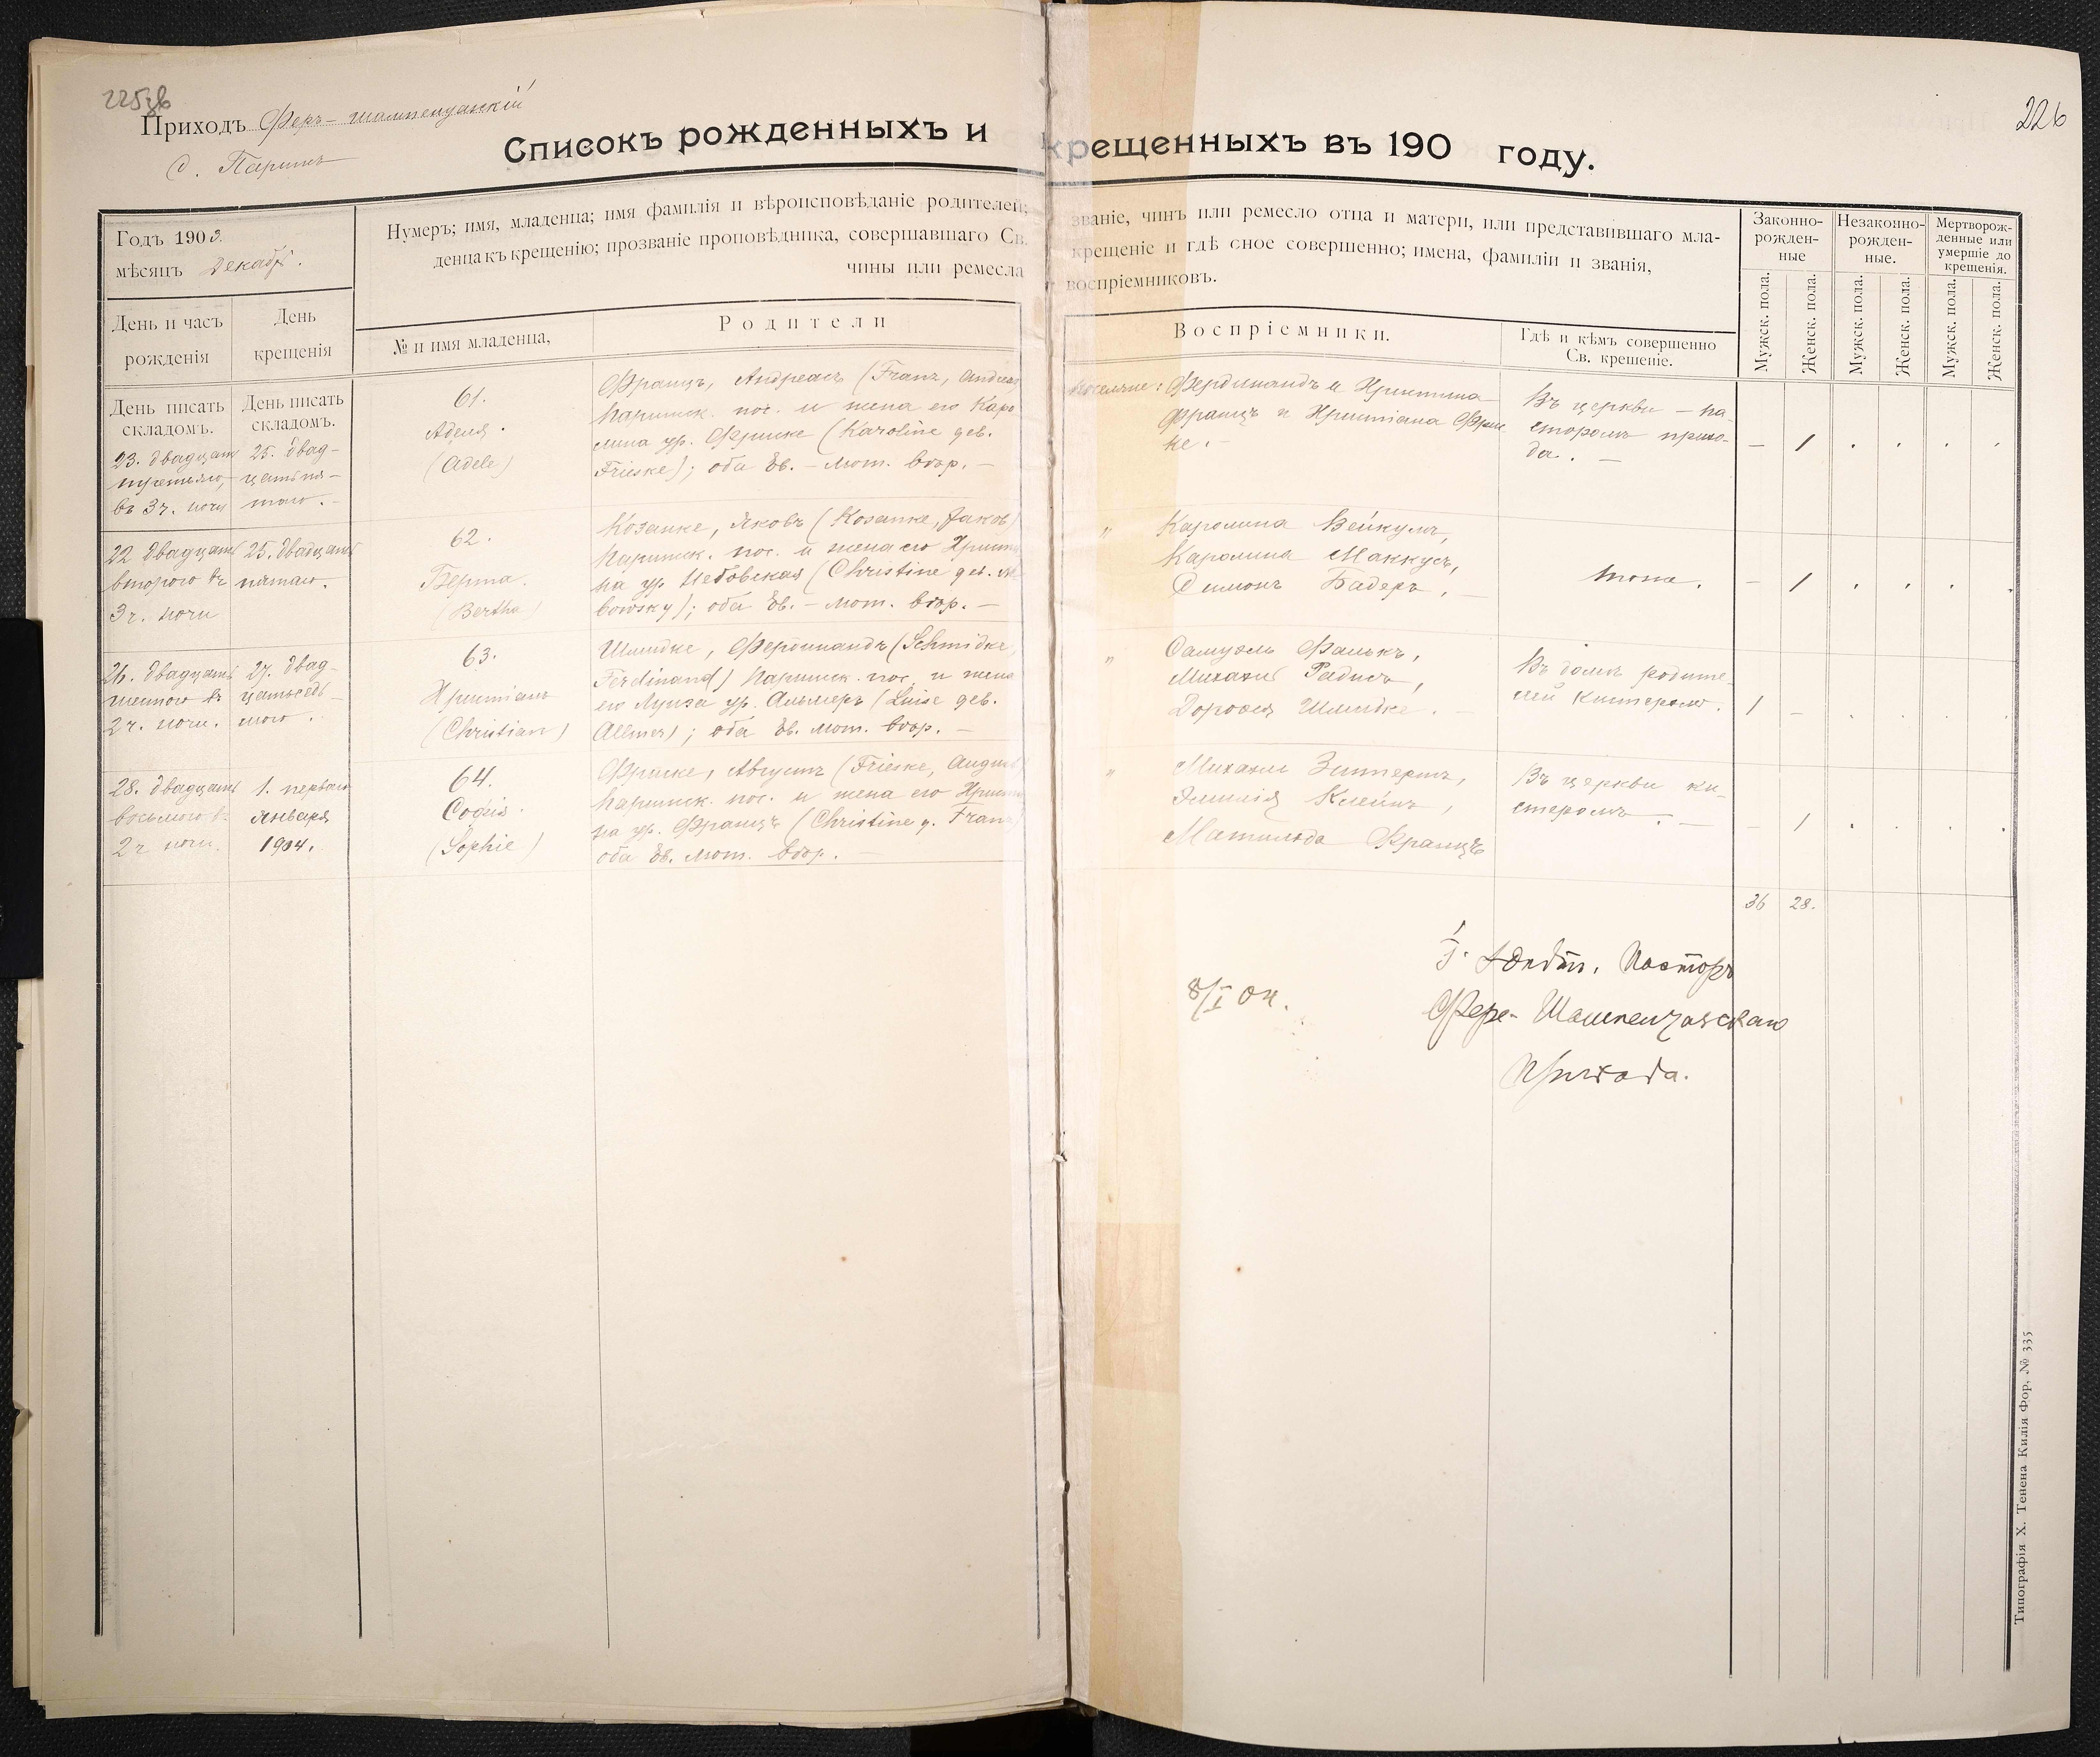 225зв
226
Приходъ Феръ-шампенуазскій
с. Парижъ
Списокъ рожденныхъ и крещенныхъ въ 190 году.
Годъ 1903.
мѣсяцъ Декабр.
Нумеръ; имя, младенца; имя фамилія и вѣроисповѣданіе родителей; званіе, чинъ или ремесло отца и матери, или представившаго мла-
денца къ крещенію; прозваніе проповѣдника, совершавшаго Св. крещеніе и гдѣ сное совершенно; имена, фамиліи и званія,
чины или ремесла воспріемниковъ.
Законно-
рожден-
ные
Незаконно-
рожден-
ные.
Мертворож-
денные или
умершіе до
крещенія.
День и часъ
рожденія
День
крещенія
№ и имя младенца,
Родители
Воспріемники.
Гдѣ и кѣмъ совершенно
Св. крещеніе.
Мужск. пола.
Женск. пола.
Мужск. пола.
Женск. пола.
Мужск. пола.
Женск. пола.
День писать
складомъ.
День писать
складомъ.
23. двадцать
третьяго,
въ 3 ч. ночи
25. двад-
цать пя-
таго. -
61.
Аделя.
(Adele)
Францъ, Андреасъ (Franz, Andreas
парижск. пос. и жена его Каро
лина ур. Фриске (Karoline geb.
Frieske); оба Ев. - лют. вѣр. -
поселяне: Фердинандъ и Христина
Францъ и Христіана Фрис
ке. -
Въ церкви - па
сторомъ прихо-
да. -
- 1 . . . .
22 двадцать
второго въ
3 ч. ночи
25. двадцать
пятаго.
62.
Берта.
(Bertha)
Козанке, Яковъ (Kosanke, Jakob)
парижск. пос. и жена его Христи
на ур. Небовская (Christine geb. Ne
bowsky); оба Ев. - лют. вѣр. -
" Каролина Вейкумъ,
Каролина Маккусъ,
Симонъ Бадеръ. -
тоже.
- 1 . . . .
26. двадцать
шестого въ
2 ч. ночи.
27. двад-
цатьседь-
мого.
63.
Христіанъ
(Christian)
Шмидке, Фердинандъ (Schmidke,
Ferdinand) парижск. пос. и жена
его Луиза ур. Альмеръ (Luise geb.
Allmer); оба Ев. лют. вѣр. -
" Самуэль Фалькъ,
Михаилъ Радисъ,
Доротея Шмидке. -
Въ домѣ родите-
лей кистеромъ.
1 - . . . .
28. двадцать
восьмого въ
2 ч ночи.
1. перваго
января
1904.
64.
Софія.
(Sophie)
Фриске, Августъ (Frieske, August)
парижск. пос. и жена его Христи
на ур. Францъ (Christine g. Franz)
оба Ев. лют. вѣр. -
" Михаилъ
Эмилія Клейнъ,
Матильда Францъ
Въ церкви ки-
стеромъ. -
- 1 . . . .
36 28.
8/I 04.
Пасторъ
Фере-Шампенуазскаго
Прихода.
Типографія Х. Тенена Килія Фор, № 335